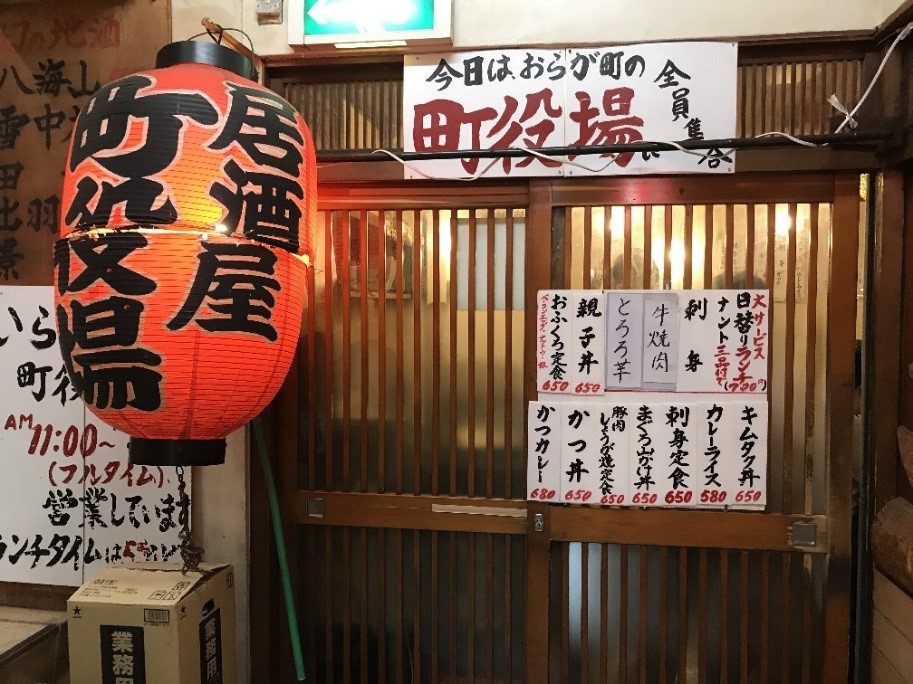 の地酒
八海山
雪中
居酒屋
町役場
今日は、おらが町の
町役場
全員集合
いら
町役
AM 11:00~
(フルタイム)
営業しています
ランチタイムは
大サービス
日替りランチ
ナント三品付で
(700円)
刺身
牛焼肉
とろろ芋
親子丼
650
おふくろ定食
650
キムタク丼
650
カレーライス
580
刺身定食
650
まぐろ山かけ丼
650
豚肉しょうが焼定食
650
かつ丼
650
かつカレー
680
業務用
業務用